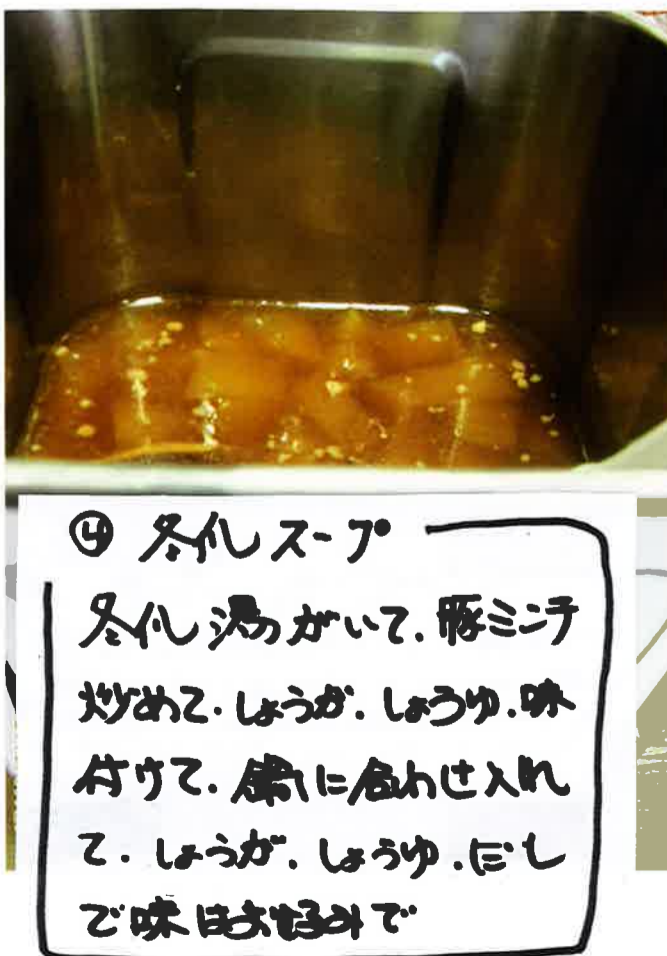 ④ 冬瓜スープ
冬瓜湯がいて、豚ミンチ
炒めて、しょうが、しょうゆ、味
付けて、鍋に合わせ入れ
て、しょうが、しょうゆ、だし
で味はお好みで